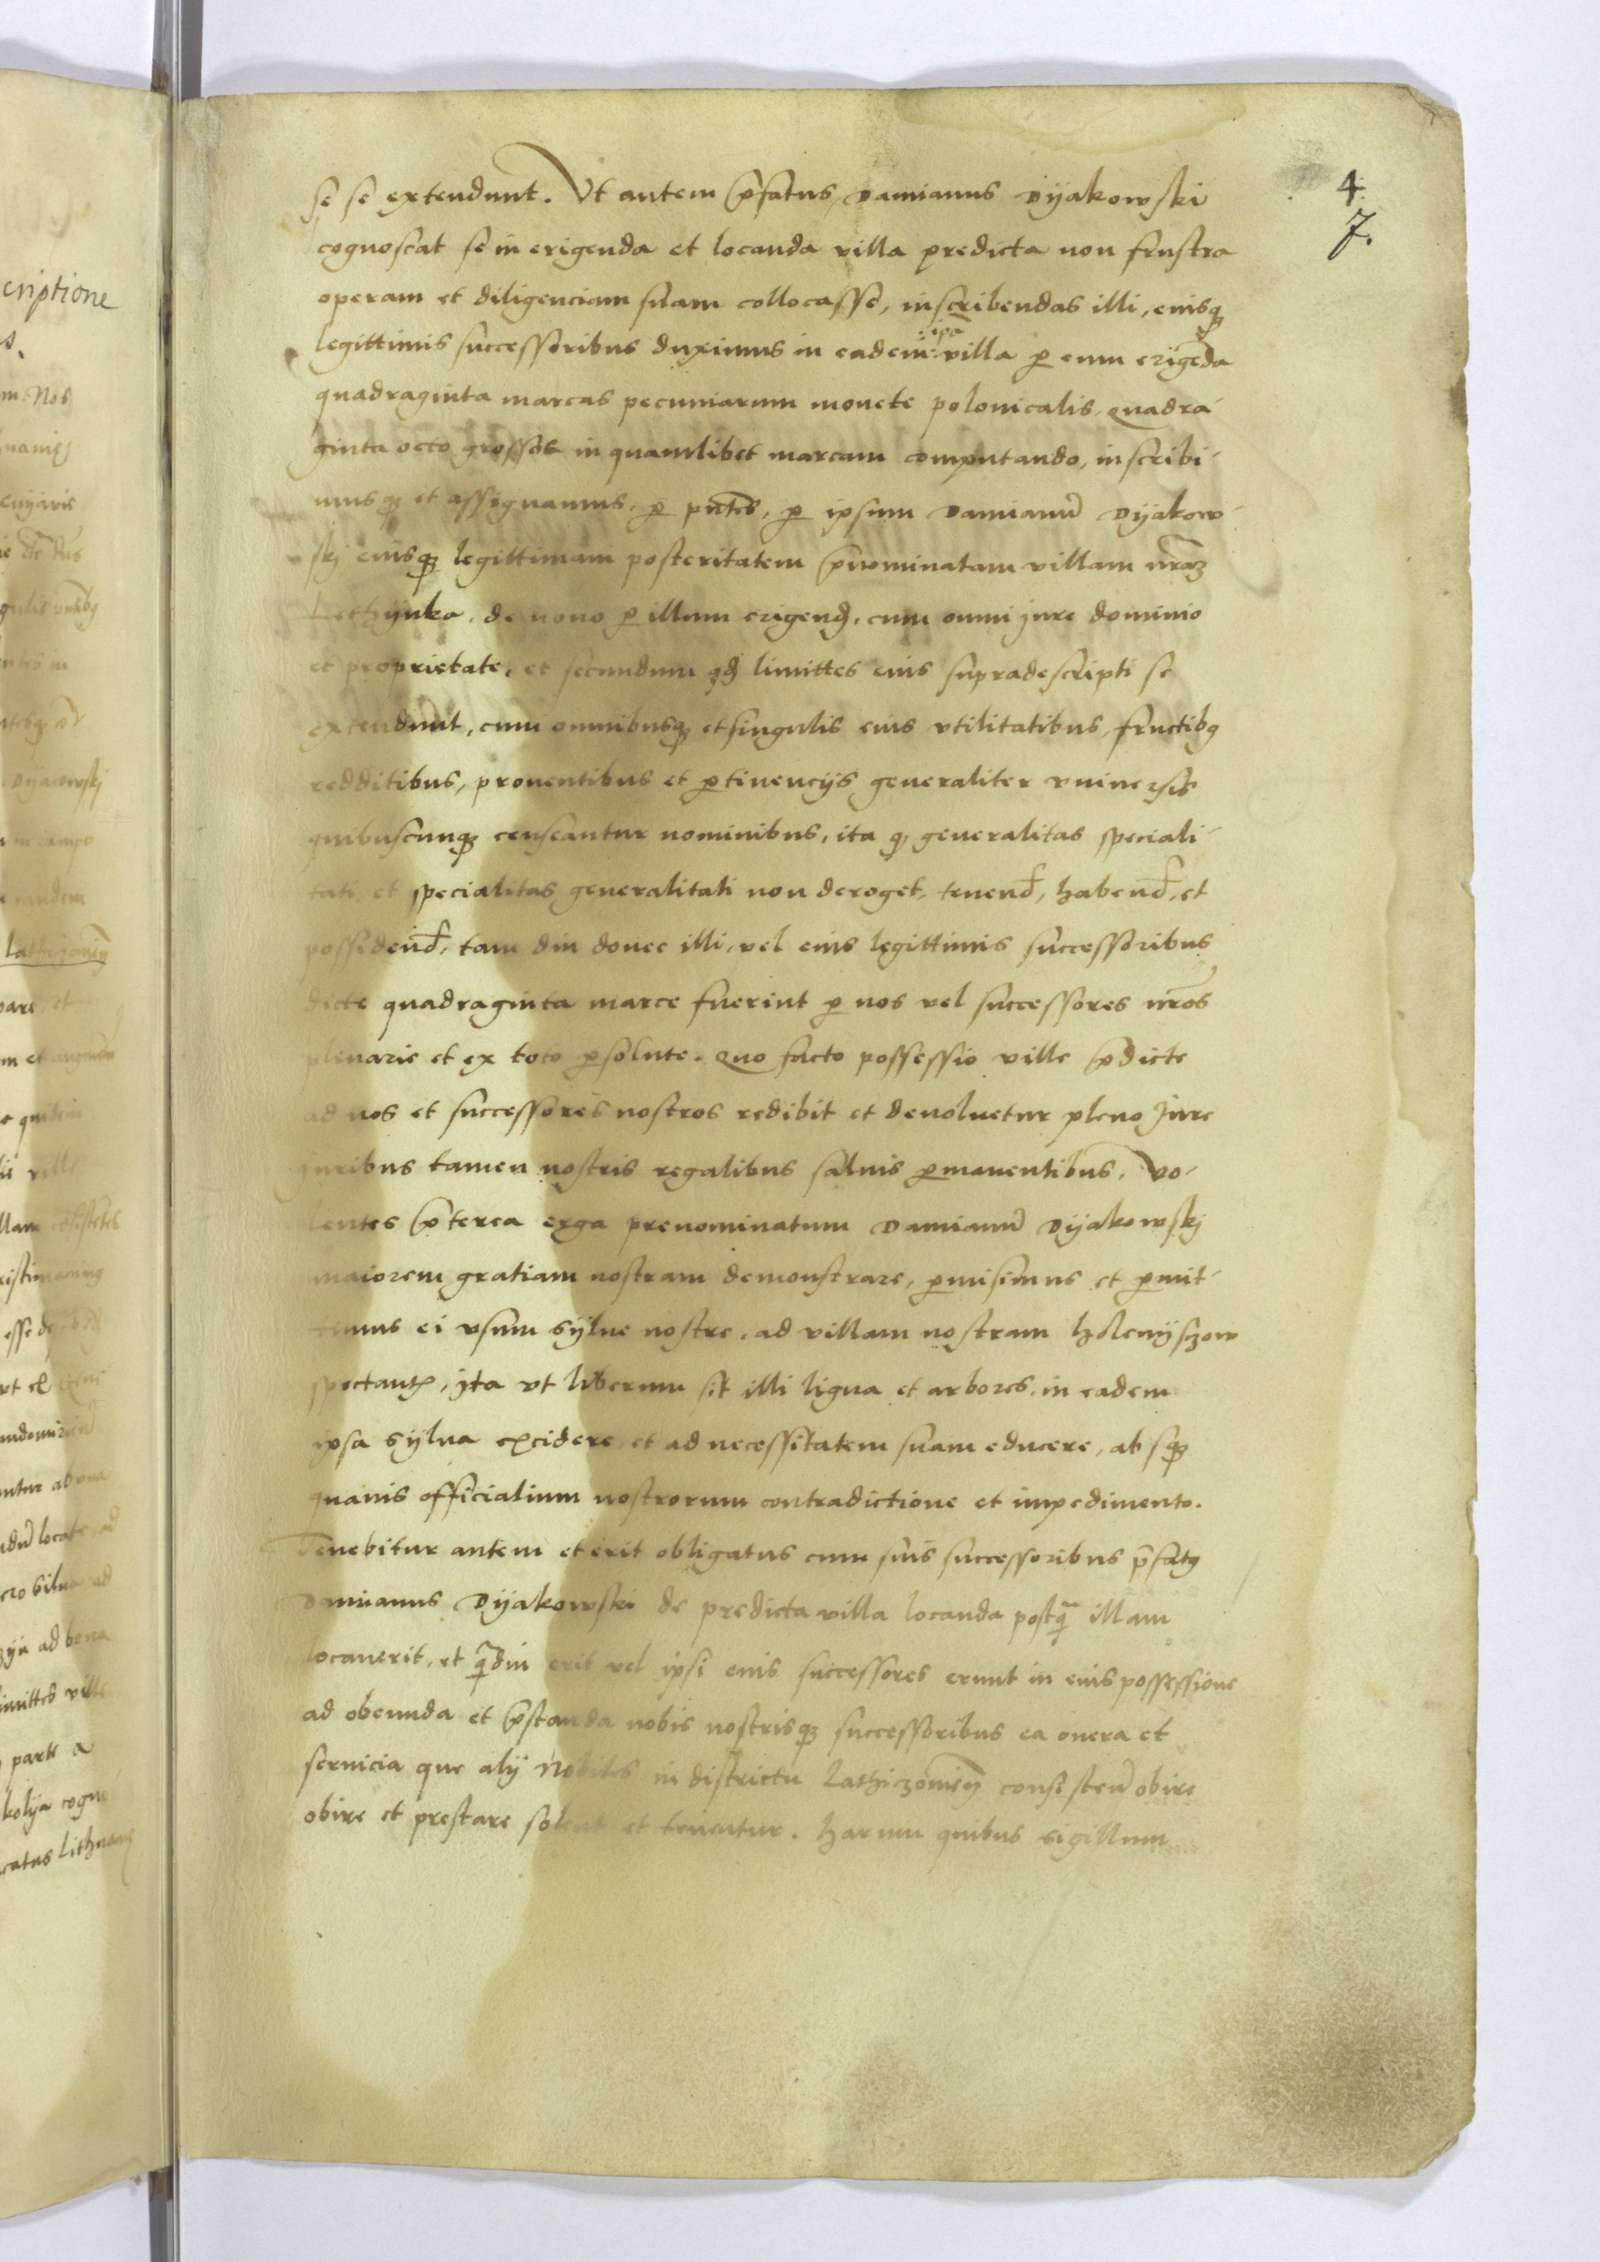 4.
7.
se se extendunt. Vt autem p̄fatus Damianus Dyakowski
cognoscat se in erigenda et locanda villa predicta non frustra
operam et diligenciam suam collocasse, inscribendas illi, eiusq3
ip̄a
legittimis successoribus duximus in eadem villa p̱ eum erige̅da
quadraginta marcas pecuniarum monete polonicalis, quadra-
ginta octo grossos in quamlibet marcam computando, inscribi-
musq3 et assignamus, p̱ pn̄tes, p̱ ipsum Damianu̅ Dyakow-
skj eiusq3 legittimam posteritatem p̄nominatam villam nr̄am
de nouo p̱ illum erigend̄, cum omni jure dominio
et proprietate, et secundum qd̄ limittes eius supradescripti se
extendunt, cum omnibusq3 et singulis eius vtilitatibus, fructib9
redditibus, prouentibus et p̱tinencijs generaliter vniuersis
quibuscunq3 censeantur nominibus, ita q̇ generalitas speciali-
tati et specialitas generalitati non deroget, tenend̄, habend̄, et
possidend̄, tam diu donec illi, vel eius legittimis successoribus
dicte quadraginta marce fuerint p̱ nos vel successores nr̄os
plenarie et ex toto p̱solute. Quo facto possessio ville p̄dicte
ad nos et successores nostros redibit et deuoluetur pleno Jure
juribus tamen nostris regalibus saluis p̱manentibus. Vo-
lentes p̄terea erga prenominatum Damianu̅ Dyakowskj
maiorem gratiam nostram demonstrare, p̱misimus et p̱mit-
timus ei vsum sylue nostre, ad villam nostram
spectant̄, yta vt liberum sit illi ligna et arbores, in eadem
ipsa sylua excidere, et ad necessitatem suam educere, absq3
quauis officialium nostrorum contradictione et impedimento.
Tenebitur autem et erit obligatus cum suis successoribus p̄fat9
Damianus Dyakowski de predicta villa locanda postq̄ illam
locauerit, et q̄diu erit vel ipsi eius successores erunt in eius possessione
ad obeunda et p̄standa nobis nostrisq3 successoribus ea onera et
seruicia que alij Nobiles in districtu consisten̄ obire
obire et prestare solent et tenentur. Harum quibus sigillum